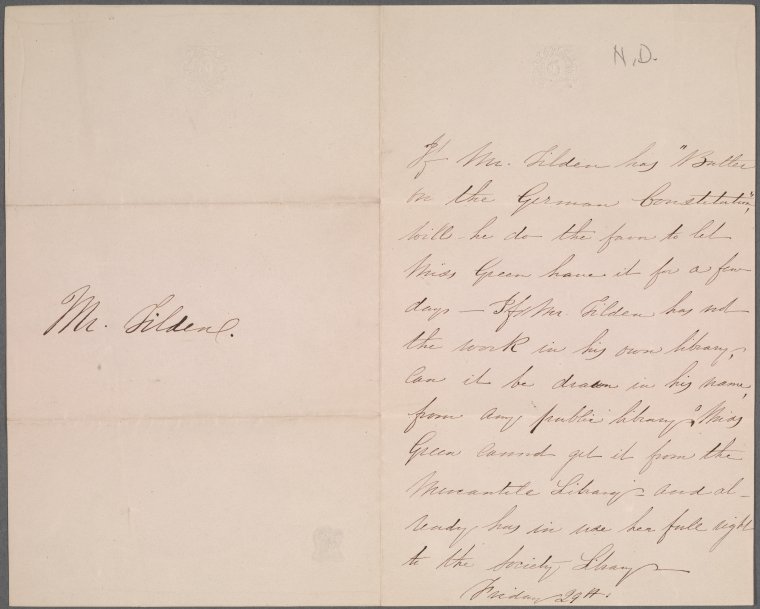 Mr. Tilden.
N.D.
If Mr. Tilden has "Butler
on the German Constitution",
will he do the favor to let
Miss Green have it for a few
days — If Mr. Tilden has not
the work in his own library,
can it be drawn in his name,
from any public library? Miss
Green cannot get it from the
Mercantile Library — and al-
ready has in use her full right
to the Society Library —
Friday 29th.